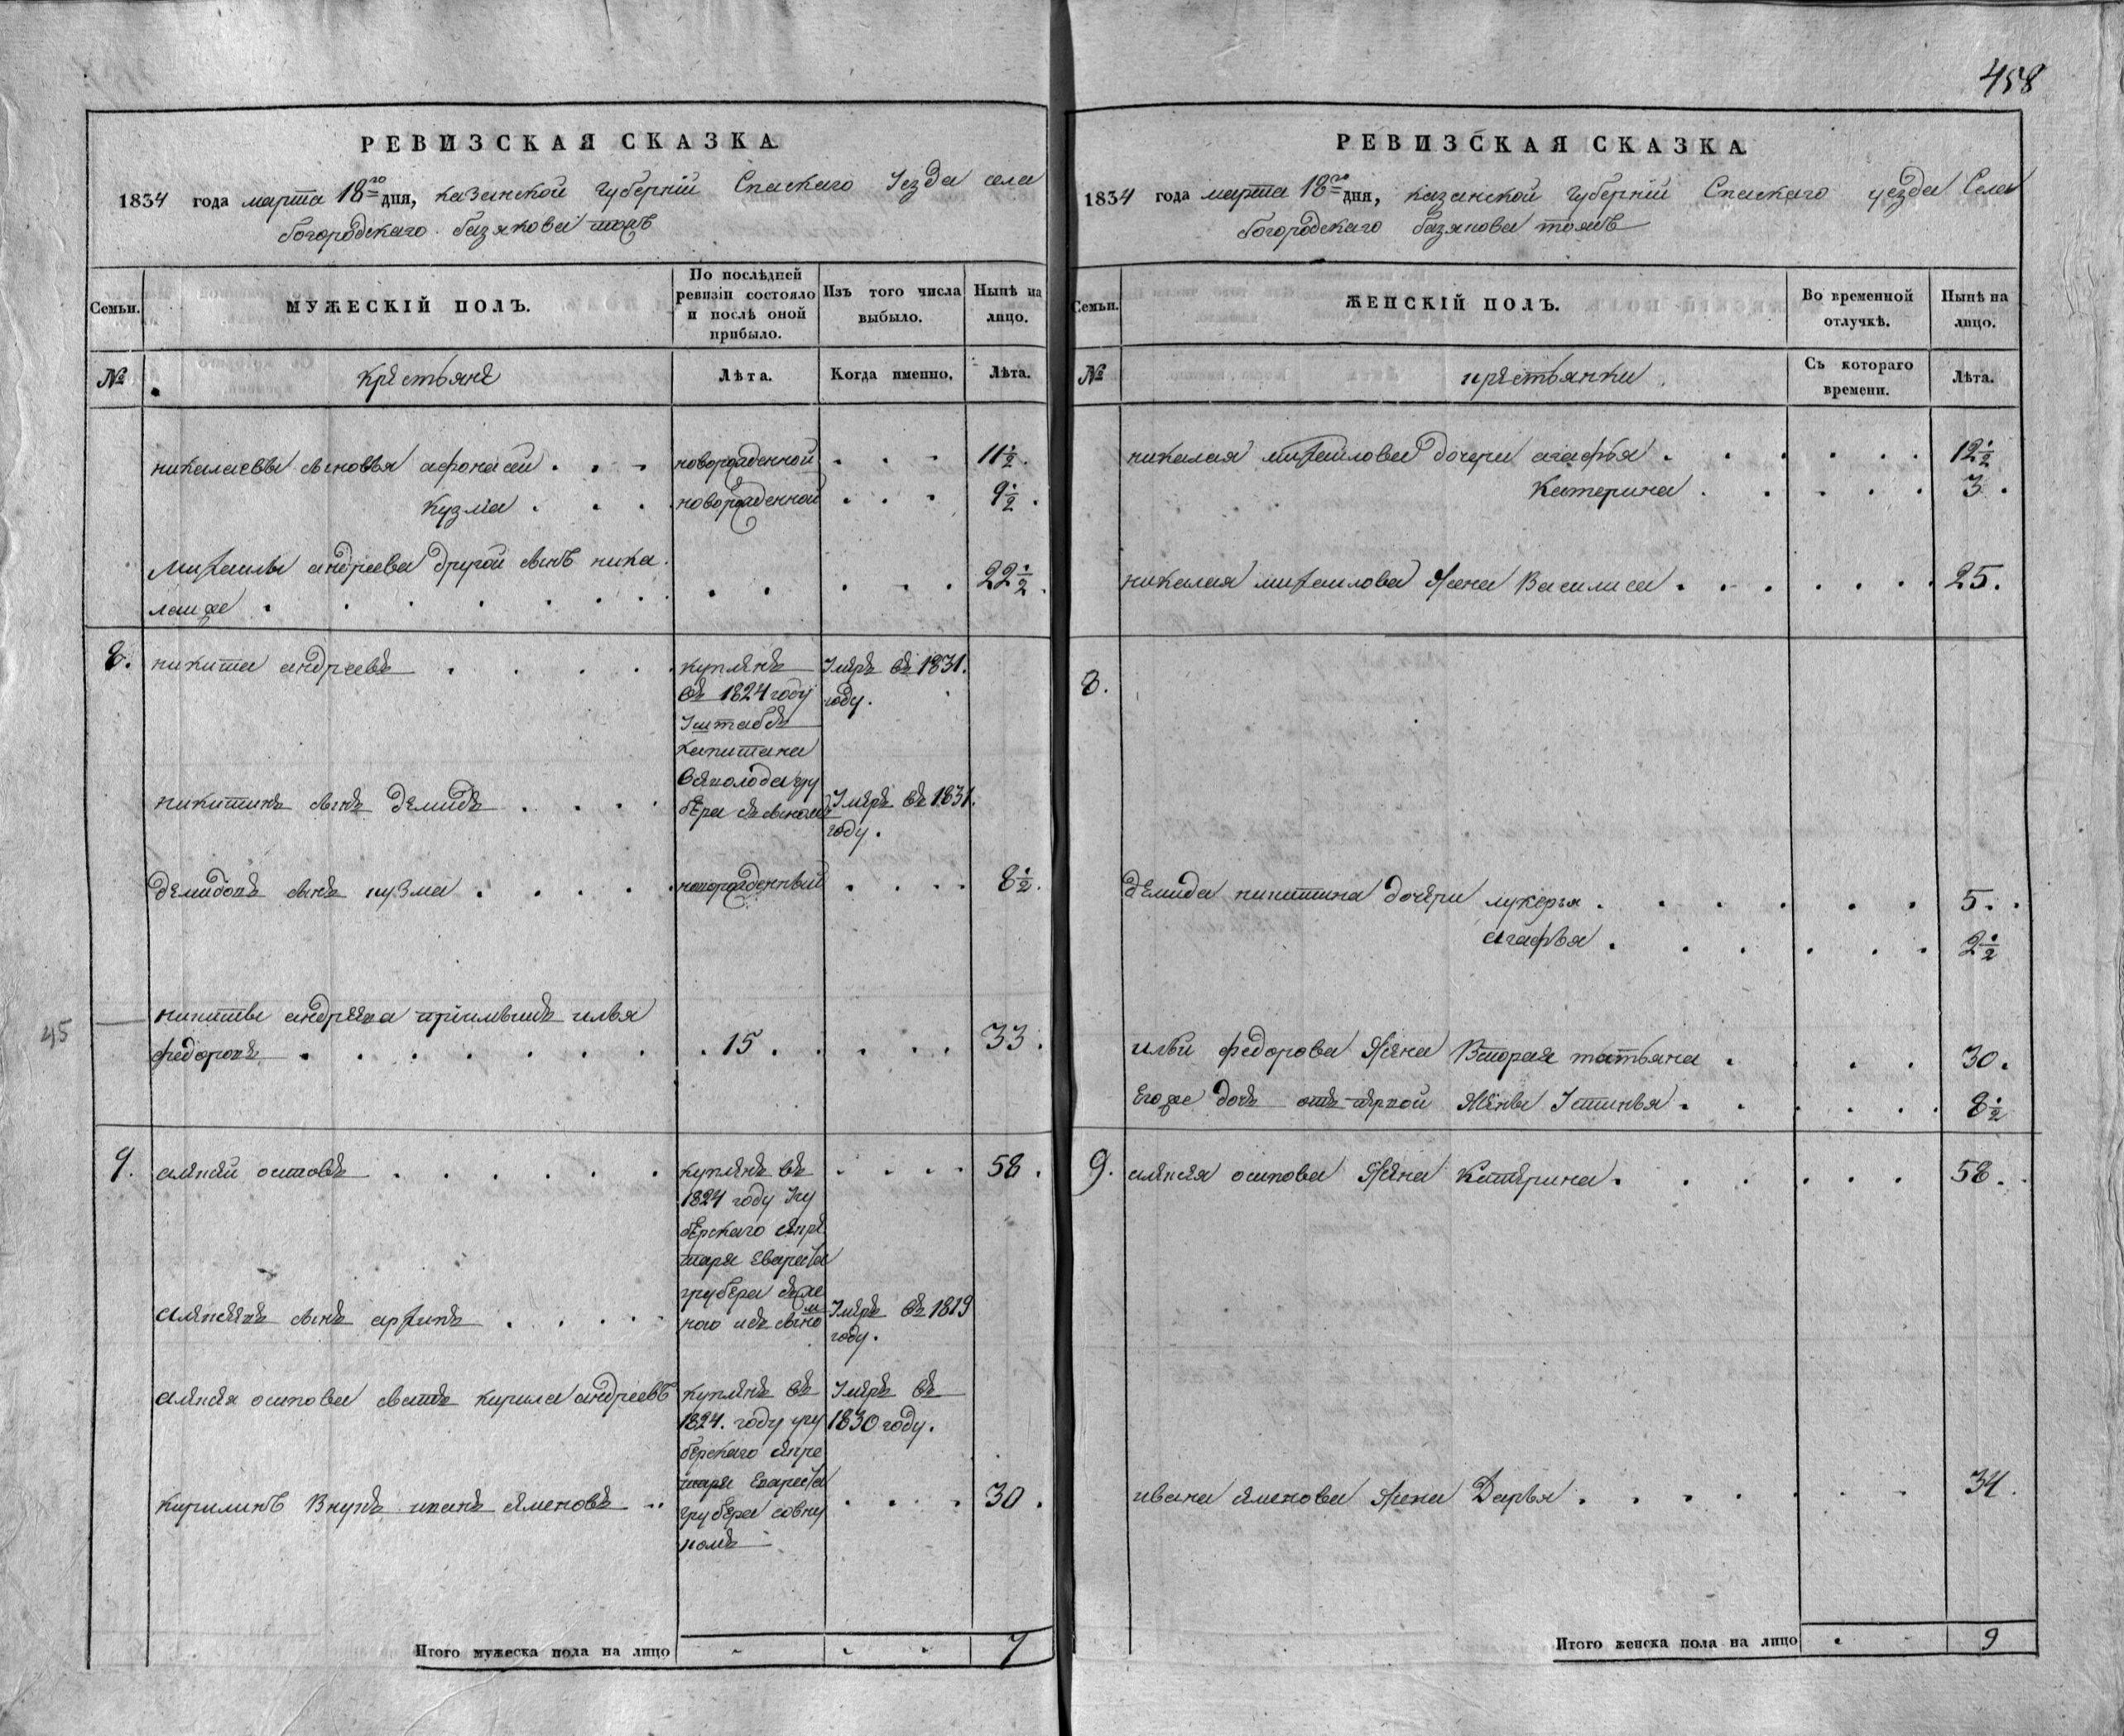 458
РЕВИЗСКАЯ СКАЗКА.
1834 года марта 18го дня, казанской губерніи Спаскаго уезда села
богородскаго базякова тожъ
Семьи.
МУЖЕСКІЙ ПОЛЪ.
По послѣдней ревизіи состояло и послѣ оной прибыло.
Изъ того числа выбыло.
Нынѣ на лицо.
№
крестьяне
Лѣта.
Когда именно.
Лѣта.
николаевы сыновья афонасей . . . новорожденной . . . 11½.
кузма . . . новорожденной . . . 9½.
михаилы андреева другой сынъ нико
лай же . . . 22½.
8. никита андреевъ . . . .
купленъ
въ 1824 году
уштабсъ
капитана
всеволода гру
бера съ сыномъ
Умеръ въ 1831.
году.
никитинъ сынъ демидъ . . . .
Умеръ въ 1831.
году.
демидовъ сынъ кузма . . . . новорожденный . . . . 8½.
45
никиты андреева приимышъ илья
федоровъ . . . . . . . 15 . . . . . 33.
9. алексей осиповъ . . . . . .
купленъ въ
1824 году У гу
бернскаго секре
таря Евареста
грубера съ же
ною и съ сыном
. . . . 58.
алексеевъ сынъ архипъ . . . .
Умеръ въ 1819
году.
алексея осипова сватъ кирила андреевъ
купленъ въ
1824. году у гу
бернскаго секре
таря Евареста
грубера совну
комъ
Умеръ въ
1830 году.
кирилинъ внукъ иванъ семеновъ . . . . . . 30.
Итого мужеска пола на лицо 7
РЕВИЗСКАЯ СКАЗКА
1834 года марта 18го дня, казанской губерніи Спаскаго уезда Села
богородскаго базякова тожъ
Семьи.
ЖЕНСКІЙ ПОЛЪ.
Во временной отлучкѣ.
Нынѣ на лицо.
№
крестьянки
Съ котораго времени.
Лѣта.
николая михайлова дочери агафья . . . . . . 12½
Катерина . . . . . 3.
николая михаилова жена Василиса . . . . . . . 25.
8.
демида никитина дочери лукерья . . . . . . 5.
агафья . . . . . . 2½
ильи федорова жена Вторая татьяна . . . . 30.
Его же дочь отъ первой жены Устинья . . . . . . 8½
9. алексея осипова жена Катерина . . . . . . 58.
ивана семенова жена Дарья . . . . . . . 34.
Итого женска пола на лицо 9